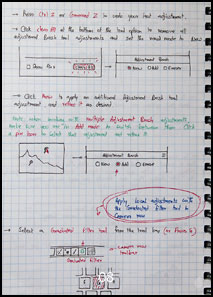 → Press Ctrl Z or Command Z to undo your last adjustment.
→ Click clear All at the bottom of the tool options to remove all
adjustment Brush tool adjustments and set the mask mode to New
Adjustment Brush
New Add Erase
→ Click New to apply an additional Adjustment Brush tool
adjustment and refine it as desired
Note: when working with multiple Adjustment Brush adjustments,
make sure you are in Add mode to switch between them. Click
a pin icon to select that adjustment and refine it
Adjustment Brush
New Add Erase
Apply Local adjustments with
the Graduated Filter tool to
Camera raw
→ Select a Graduated Filter tool from the tool bar (or Press G)
Camera raw
toolbar
Graduated Filter